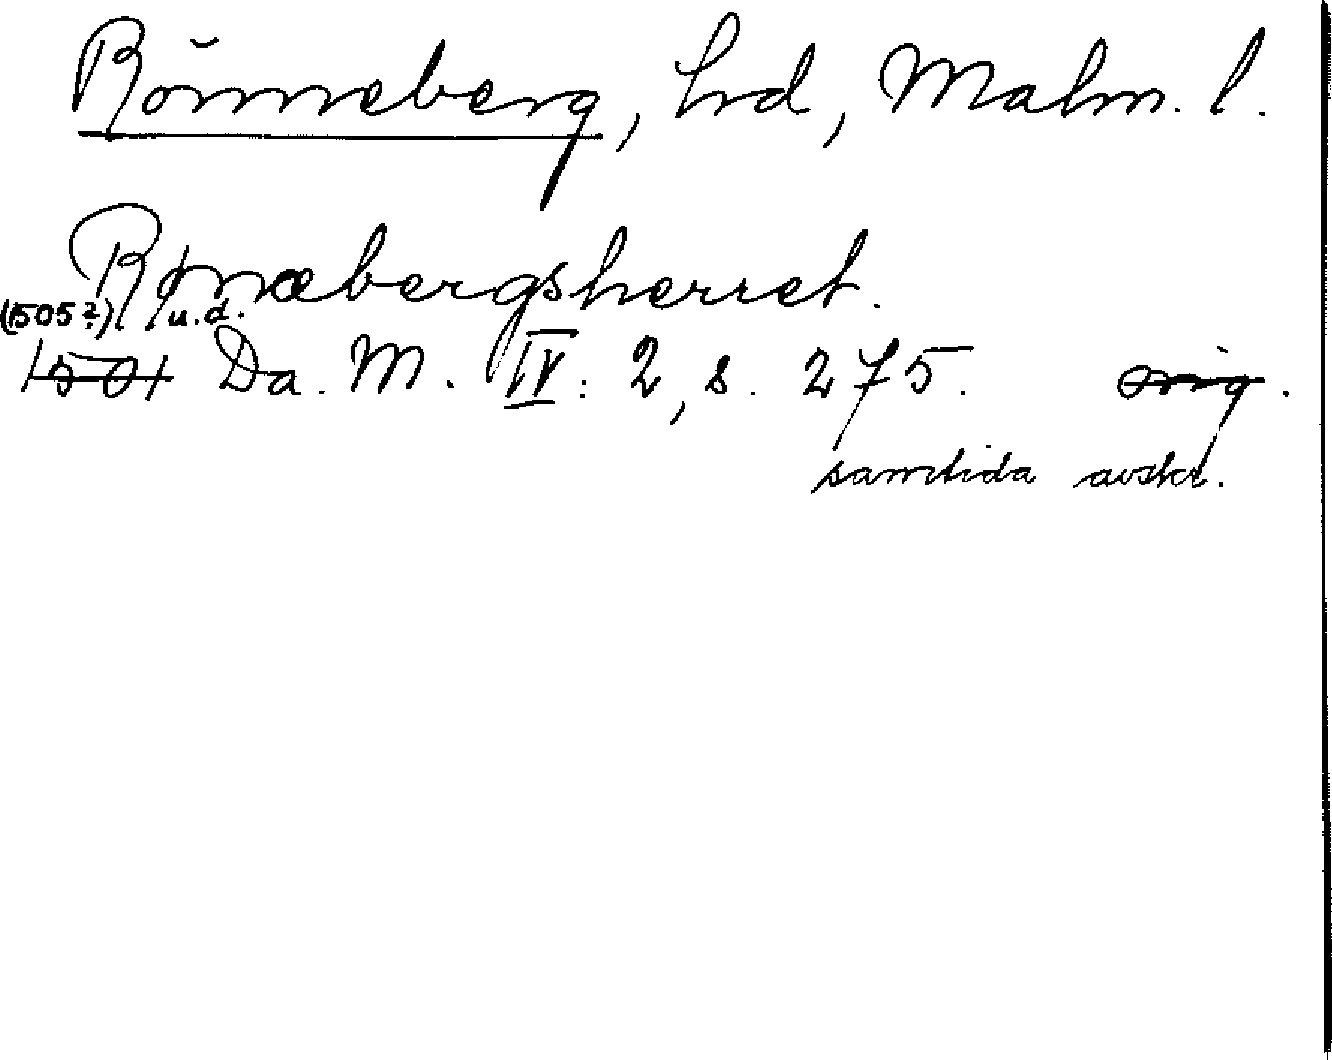 Rönneberg, hrd, Malm. l.
Rønæbergsherret.
(1505?) u.d.
1501 Da. M. IV: 2, s. 275. orig.
samtida avskr.